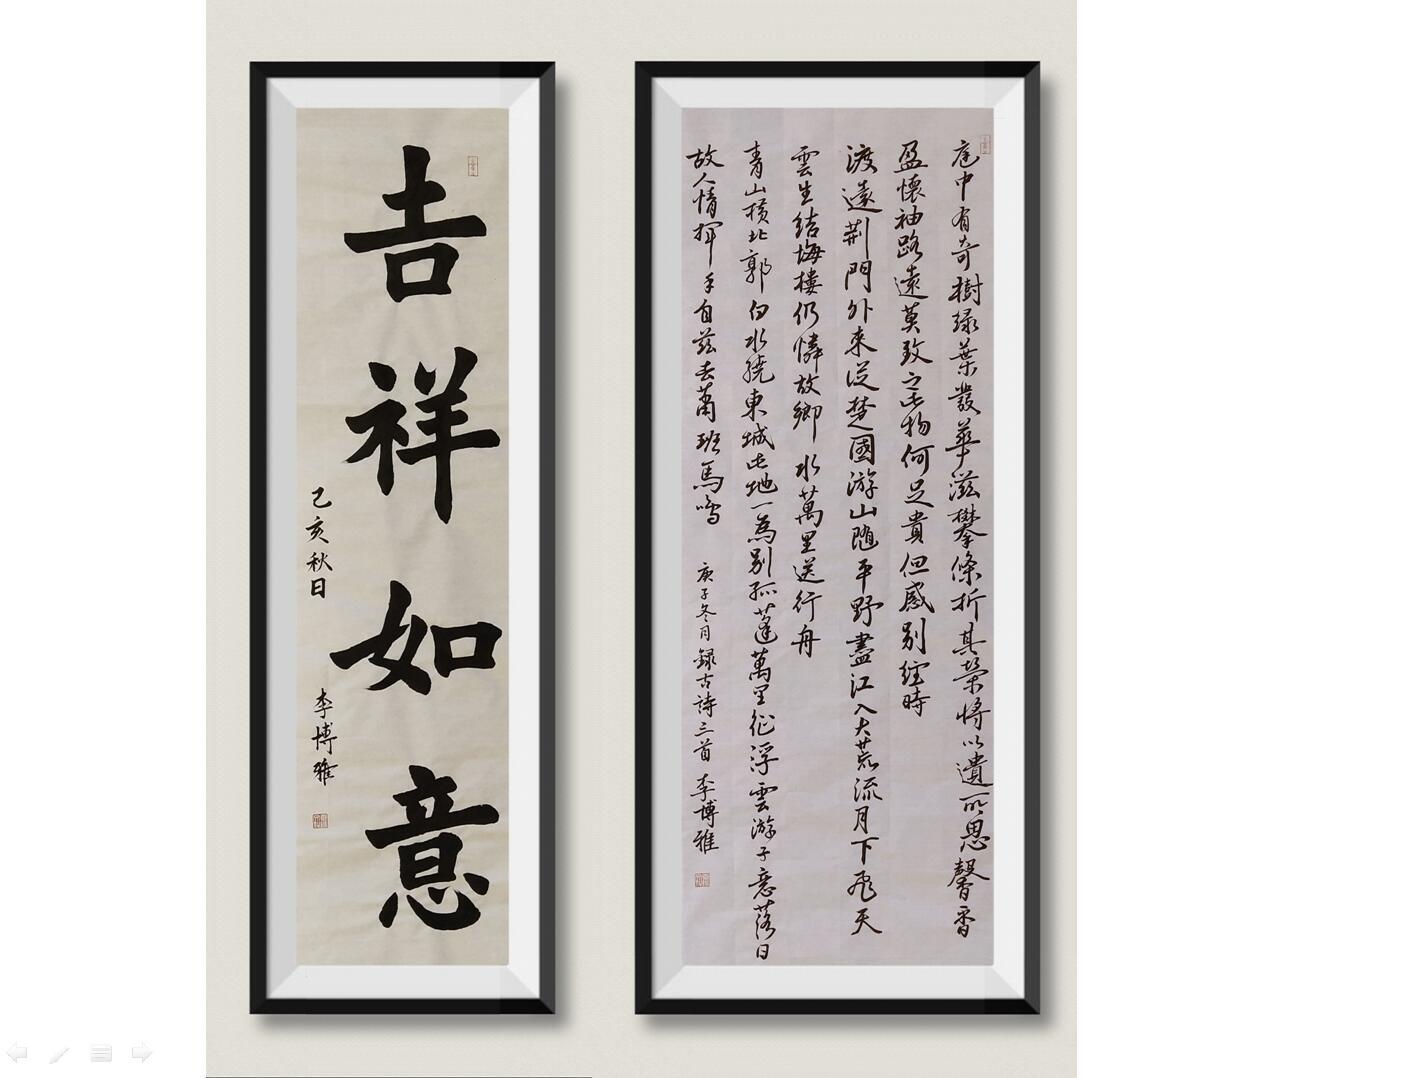 吉祥如意
己亥秋日
李博雅
庭中有奇樹绿葉發華滋攀條折其榮將以遺所思馨香
盈懷袖路遠莫致之此物何足貴但感别經時
渡遠荆門外来從楚國游山随平野盡江入大荒流月下飛天
雲生結海樓仍憐故鄉水萬里送行舟
青山橫北郭白水繞東城此地一為别孤蓬萬里征浮雲游子意落日
故人情揮手自兹去蕭班馬鳴
庚子冬月録古詩三首李博雅